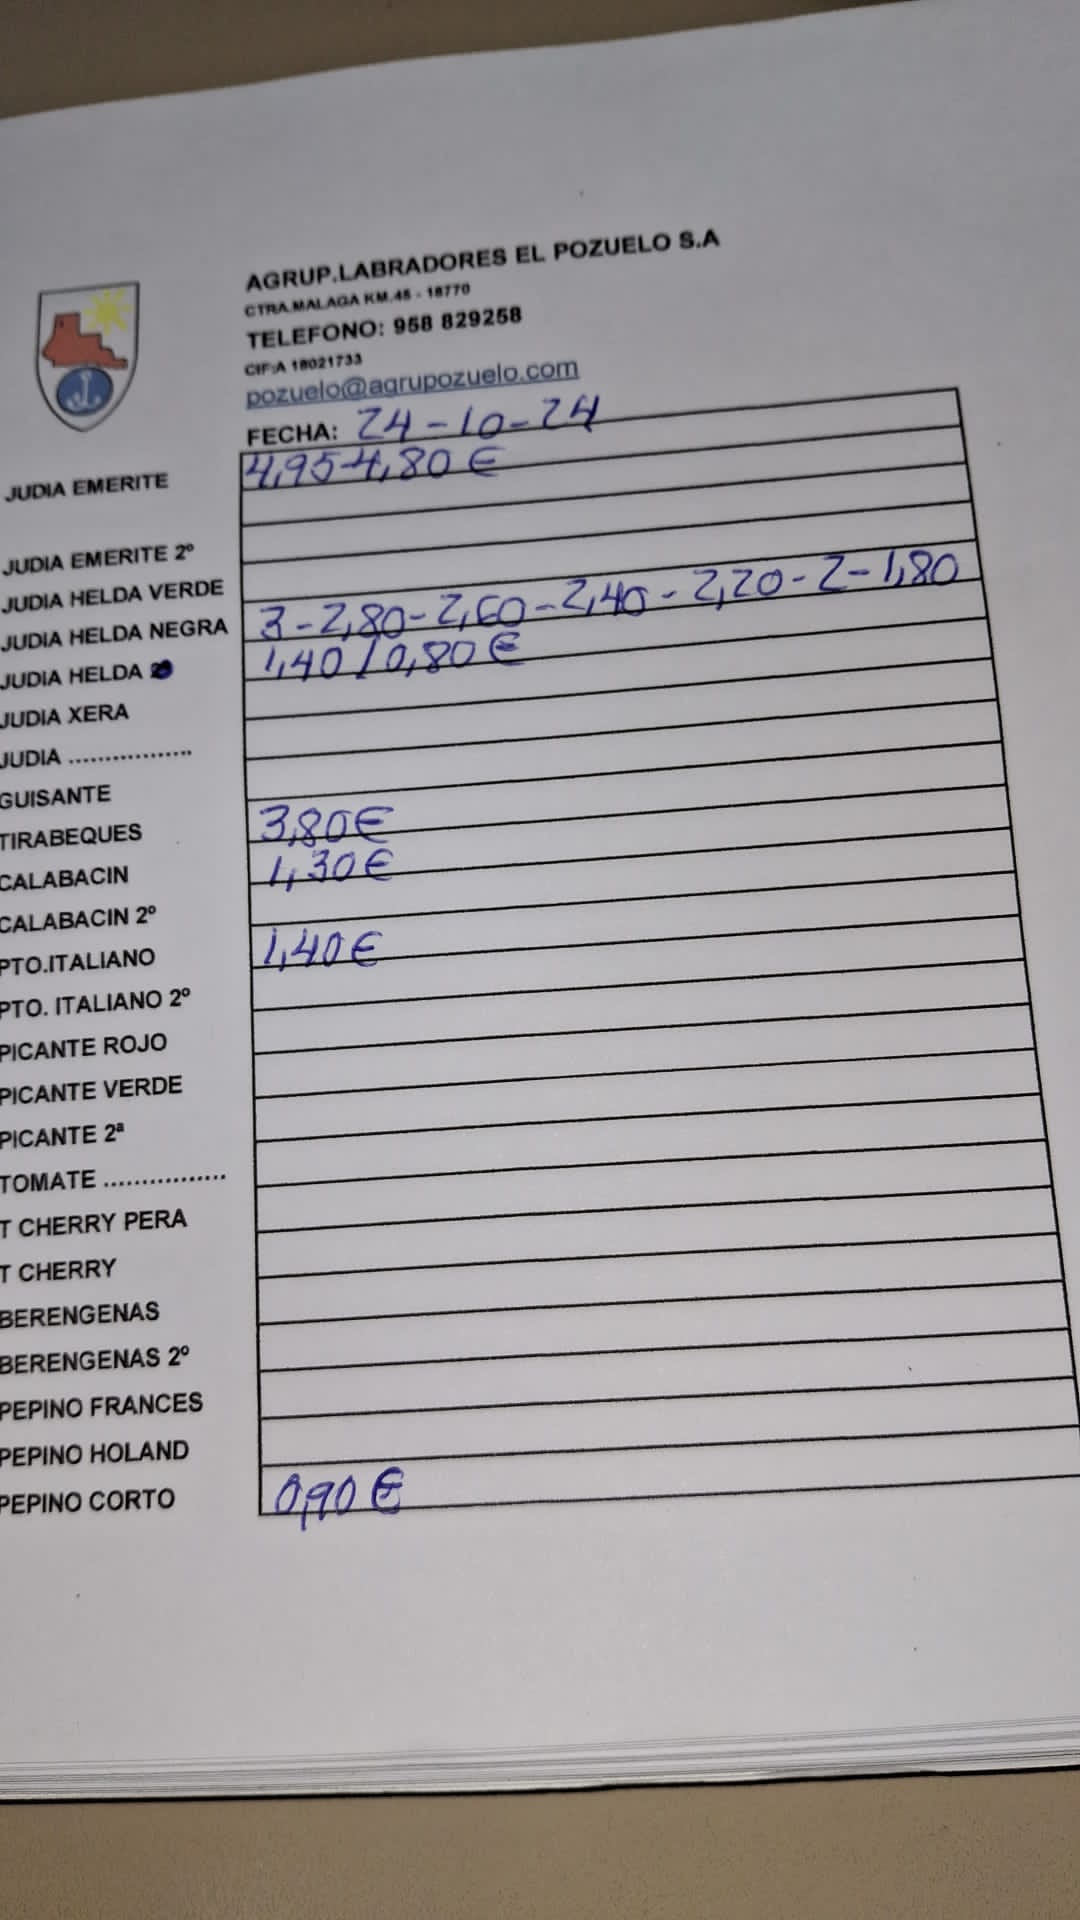 AGRUP.LABRADORES EL POZUELO S.A
CTRA.MALAGA KM.45 - 18770
TELEFONO: 958 829258
CIF:A 18021733
pozuelo@agrupozuelo.com
FECHA: 24-10-24
JUDIA EMERITE 4,95-4,80 €
JUDIA EMERITE 2º
JUDIA HELDA VERDE
JUDIA HELDA NEGRA 3-2,80-2,60-2,40-2,20-2-1,80
JUDIA HELDA 1,40/0,80 €
JUDIA XERA
JUDIA .................
GUISANTE
TIRABEQUES 3,80 €
CALABACIN 1,30 €
CALABACIN 2º
PTO.ITALIANO 1,40 €
PTO. ITALIANO 2º
PICANTE ROJO
PICANTE VERDE
PICANTE 2ª
TOMATE ................
T CHERRY PERA
T CHERRY
BERENGENAS
BERENGENAS 2º
PEPINO FRANCES
PEPINO HOLAND
PEPINO CORTO 0,90 €